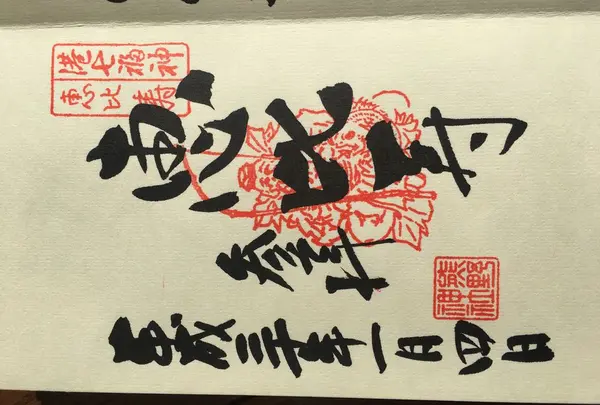 港七福神
恵比寿
恵比寿
参拝
平成三十年一月四日
熊野
神社